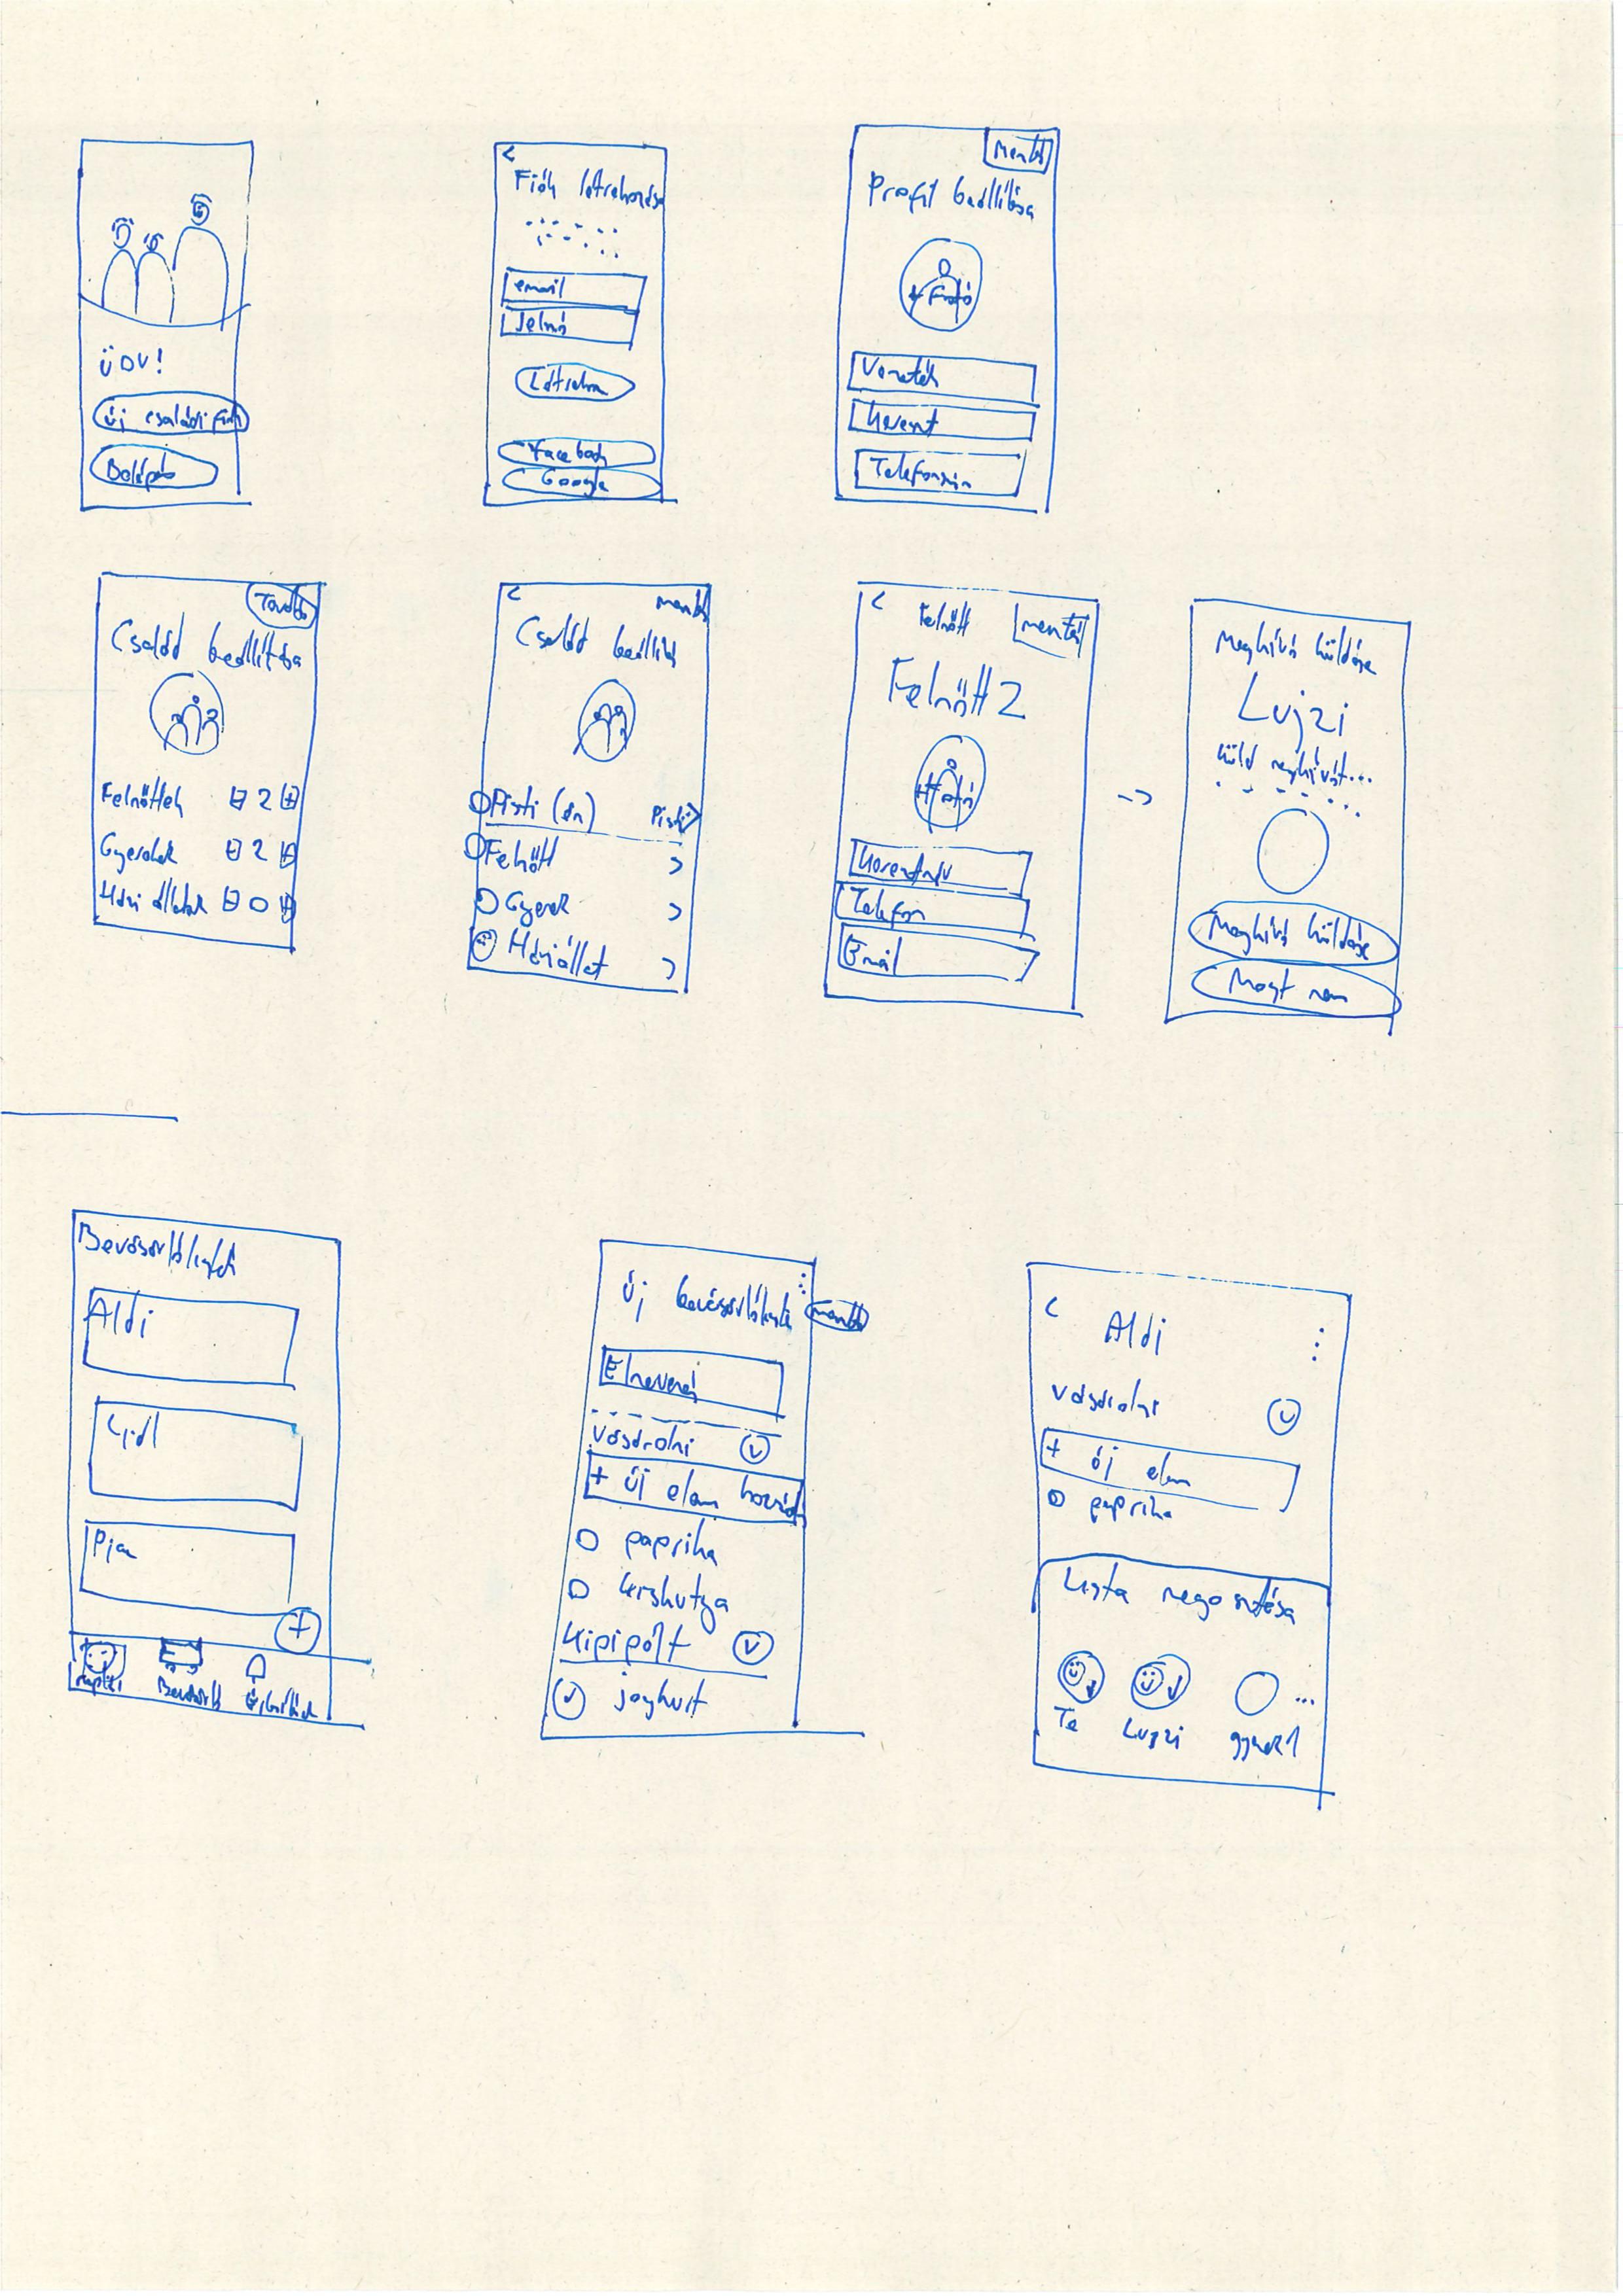 üDV!
Új családi fiók
Belépés
<
Fiók létrehozása
email
Jelszó
Létrehoz
Facebook
Google
Mentés
Profil beállítása
+ Fotó
Vezeték
Kereszt
Telefonszám
Tovább
Család beállítása
Felnőttek - 2 +
Gyerekek - 2 +
Házi állatok - 0 +
< mentés
Család beállítás
Pisti (én) Pisti >
Felnőtt >
Gyerek >
Háziállat >
< Felnőtt mentés
Felnőtt 2
+ Fotó
Keresztnév
Telefon
Email
->
Meghívó küldése
Lujzi
Küld meghívót...
Meghívó küldése
Most nem
Bevásárlólisták
Aldi
Lidl
Piac
+
Bevásárló
Új bevásárlólista mentés
Elnevezés
Vásárolni
+ Új elem hozzáad
paprika
Kipipált
joghurt
<
Aldi
Vásárolni
+ új elem
paprika
Lista megosztása
Te
Lujzi
gyerek1
...